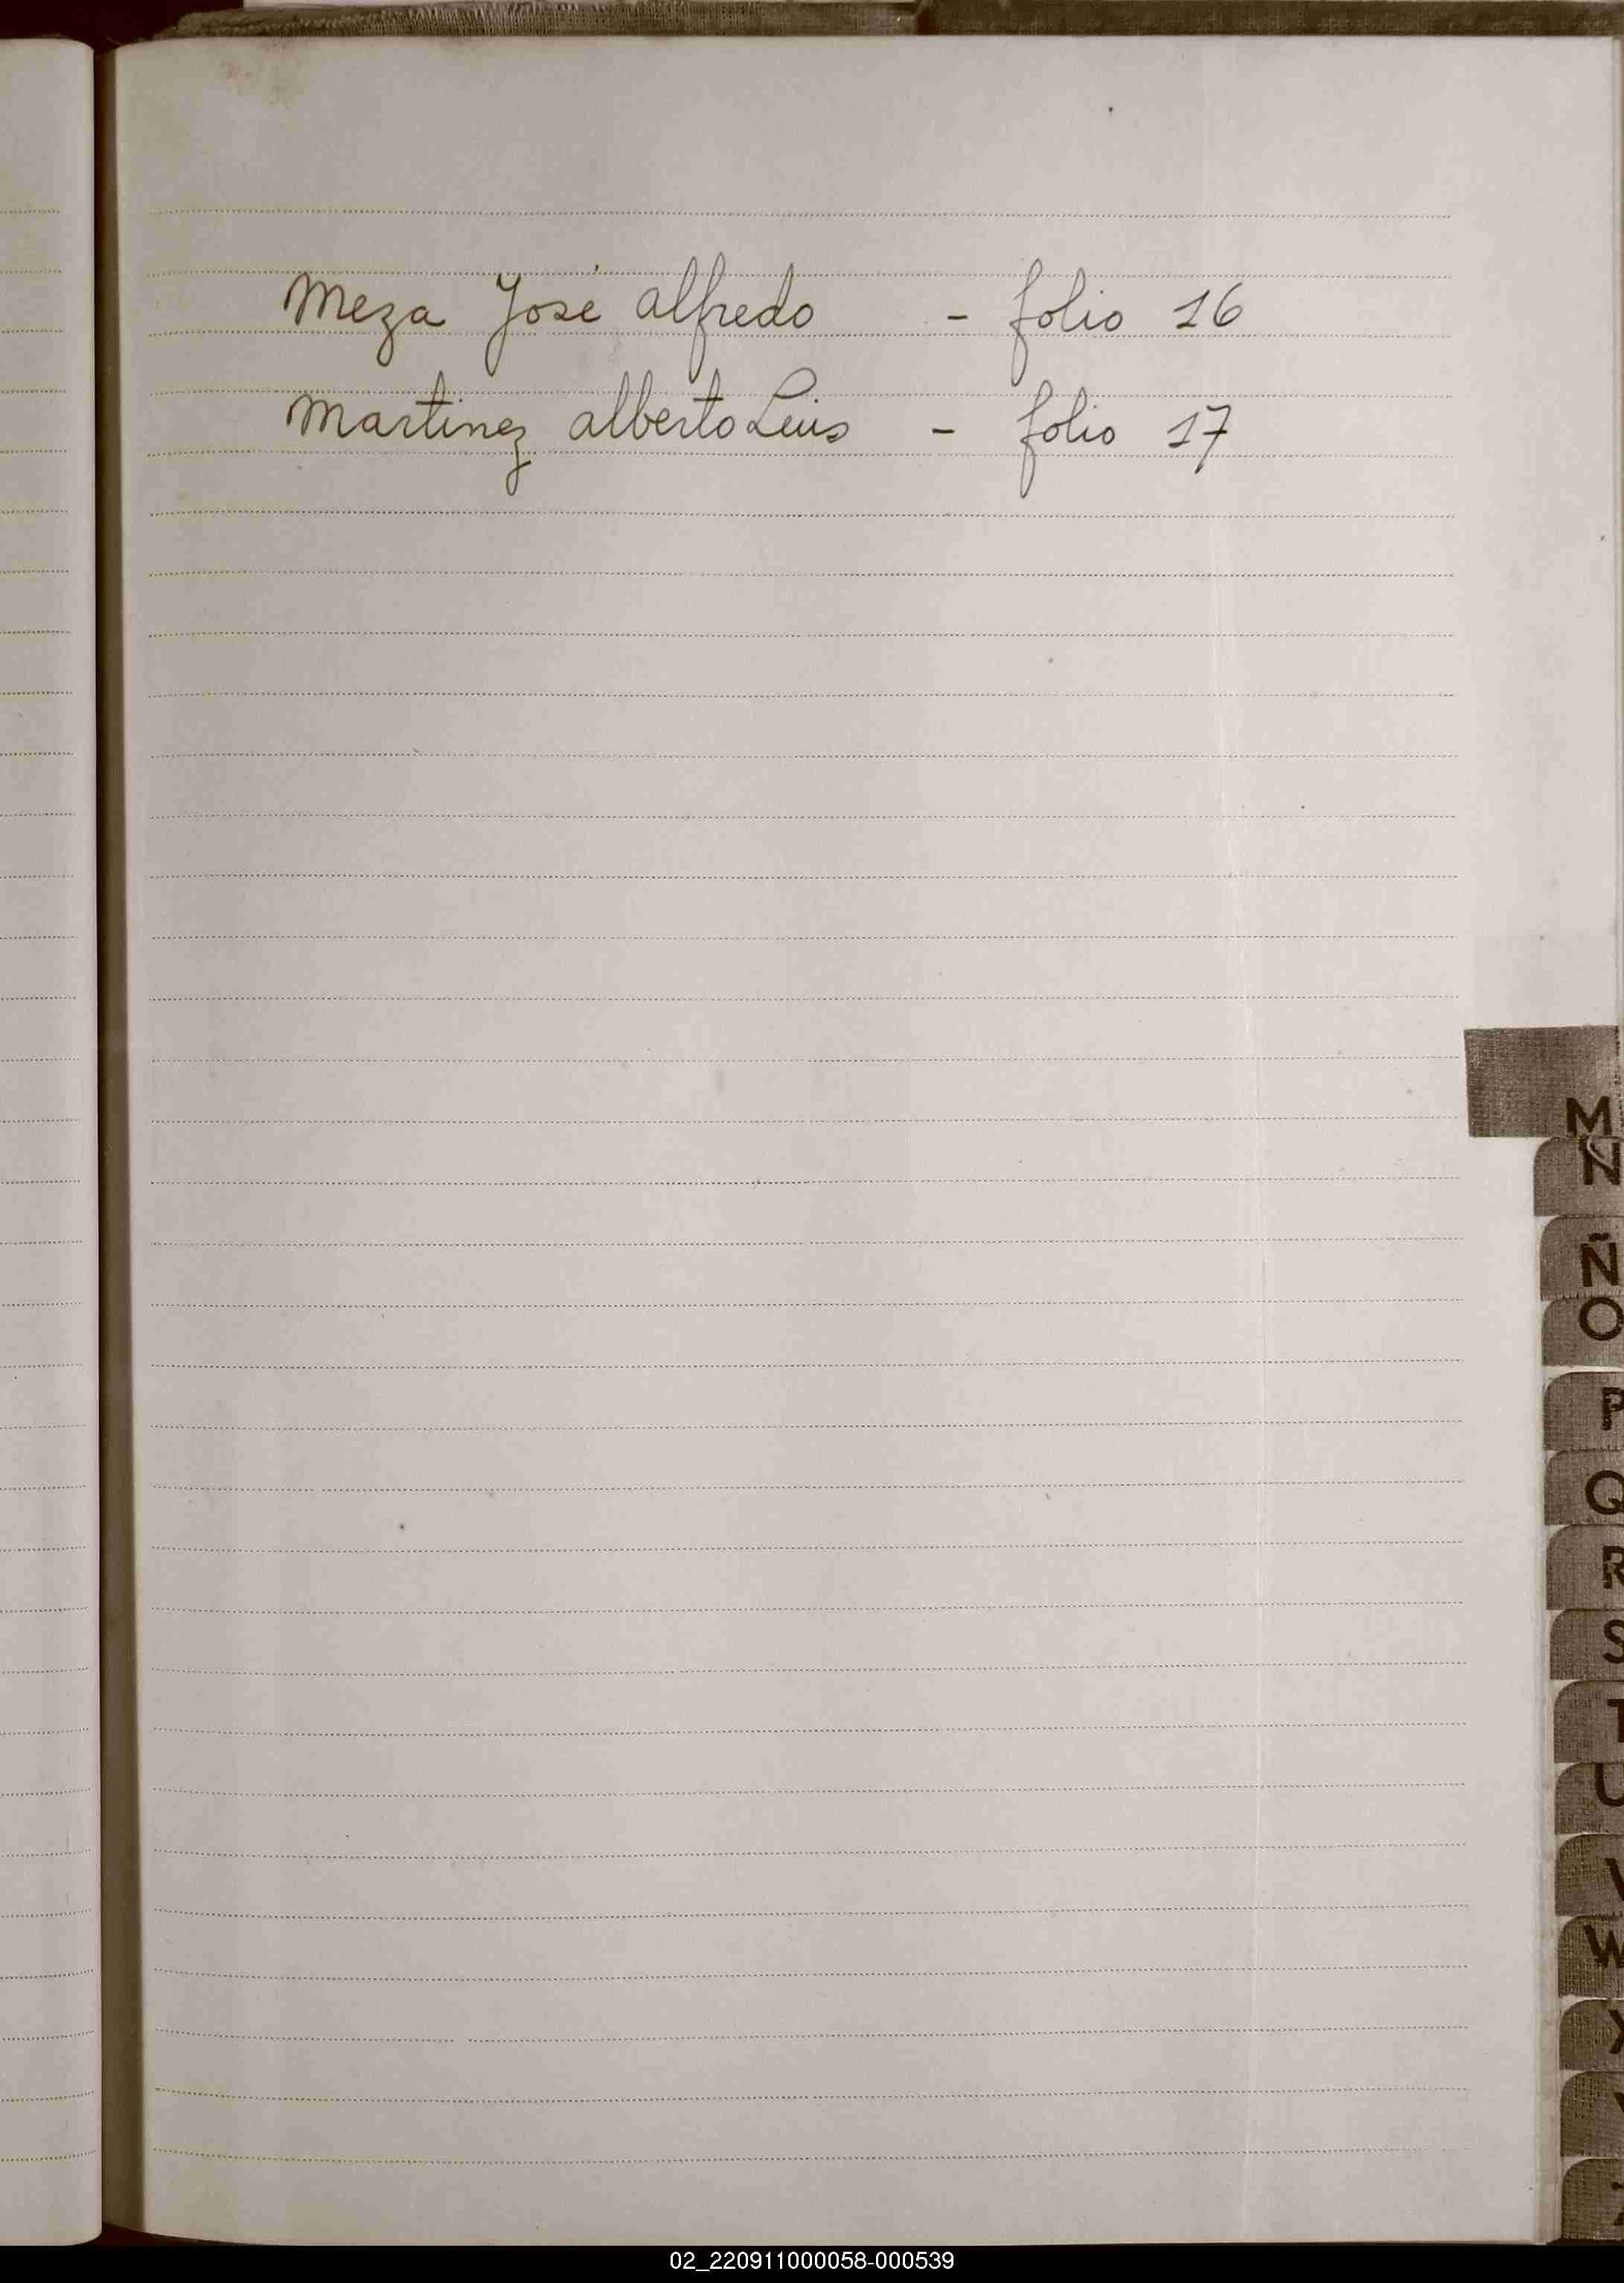 Meza José Alfredo - folio 16
Martinez Alberto Luis - folio 17
M
N
Ñ
O
P
Q
R
S
T
U
V
W
X
02_220911000058-000539